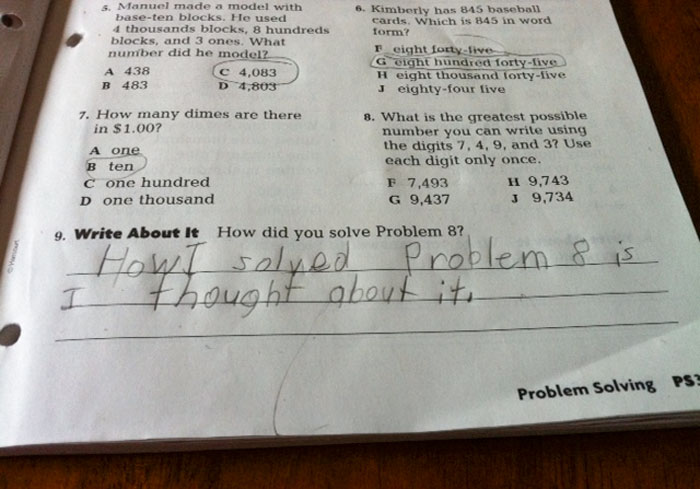 5. Manuel made a model with
base-ten blocks. He used
4 thousands blocks, 8 hundreds
blocks, and 3 ones. What
number did he model?
A 438 C 4,083
B 483 D 4,803
6. Kimberly has 845 baseball
cards. Which is 845 in word
form?
F eight forty-five
G eight hundred forty-five
H eight thousand forty-five
J eighty-four five
7. How many dimes are there
in $1.00?
A one
B ten
C one hundred
D one thousand
8. What is the greatest possible
number you can write using
the digits 7, 4, 9, and 3? Use
each digit only once.
F 7,493 H 9,743
G 9,437 J 9,734
9. Write About It How did you solve Problem 8?
How I solved Problem 8 is
I thought about it.
Problem Solving PS3
© Harcourt